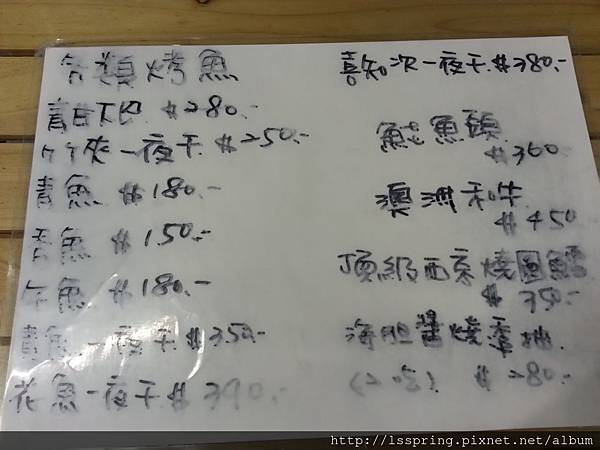 各類烤魚
青甘下巴 $280.-
竹筴一夜干 $250.-
青魚 $180.-
魚 $150.-
午魚 $180.-
魚一夜干 $350.-
花魚一夜干 $390.-
喜知次一夜干 $380.-
魚頭
$360
澳洲和牛
$450
頂級西京燒圓鱈
$350.-
海膽醬燒干
(2吃) $280.-
http://lsspring.pixnet.net/album